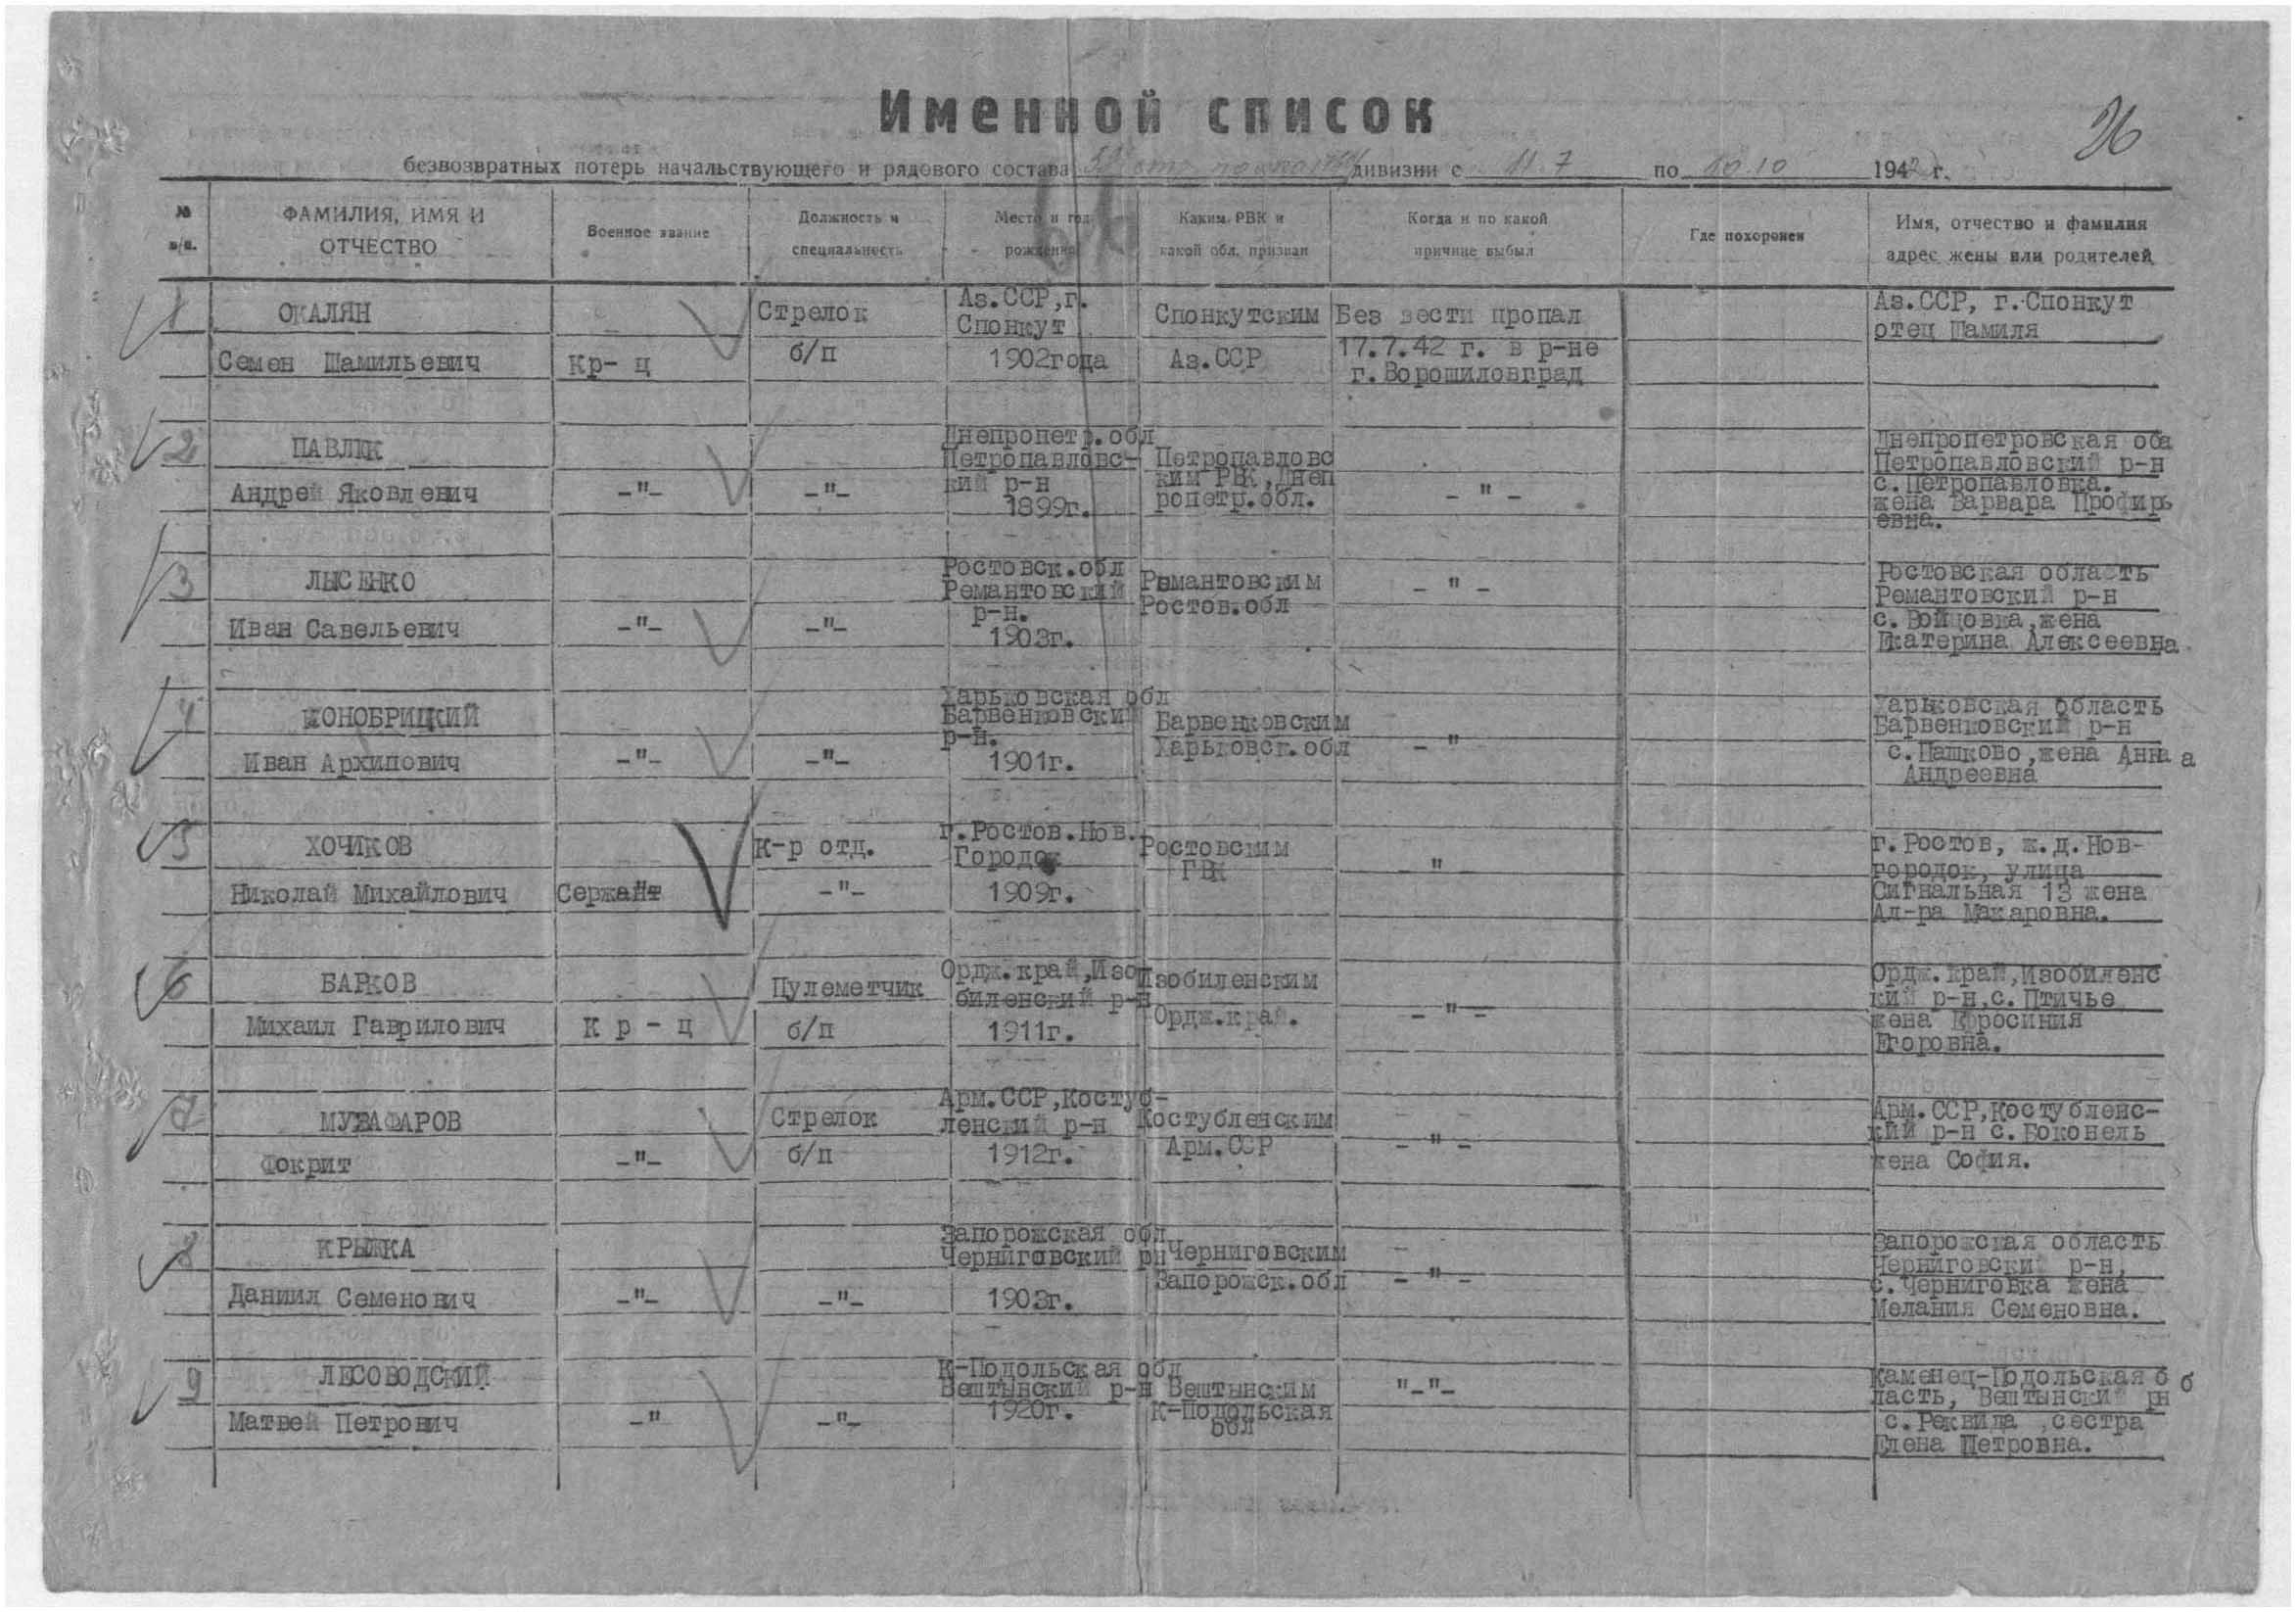 Именной список
26
безвозвратных потерь начальствующего и рядового состава дивизии с 11.7 по 10.10 1942 г.
№ п/п. ФАМИЛИЯ, ИМЯ И ОТЧЕСТВО Военное звание Должность и специальность Место и год рождения Каким РВК и какой обл. призван Когда и по какой причине выбыл Где похоронен Имя, отчество и фамилия адрес жены или родителей
1 ОКАЛЯН Стрелок Аз.ССР,г. Спонкут Спонкутским Без вести пропал Аз.ССР, г. Спонкут отец Шамиля
Семен Шамильевич Кр-ц б/п 1902года Аз.ССР 17.7.42 г. в р-не г.Ворошиловград
2 ПАВЛЮК Днепропетр.обл Петропавловс- Петропавловс Днепропетровская обл Петропавловский р-н
Андрей Яковлевич -"- -"- кий р-н 1899г. ким РВК,Днеп ропетр.обл. -"- с.Петропавловка. жена Варвара Профирь евна.
3 ЛЫСЕНКО Ростовск.обл Ремантовский Ремантовским -"- Ростовская область Ремантовский р-н
Иван Савельевич -"- -"- р-н. 1903г. Ростов.обл с.Войцовка,жена Екатерина Алексеевна
4 КОНОБРИЦКИЙ Харьковская обл Барвенковский Барвенковским Харьковская область Барвенковский р-н
Иван Архипович -"- -"- р-н. 1901г. Харьковск.обл -" с.Пашково,жена Анна а Андреевна
5 ХОЧИКОВ К-р отд. г.Ростов.Нов. Городок Ростовским ГВК -" г.Ростов, ж.д.Нов- городок, улица
Николай Михайлович Сержант -"- 1909г. Сигнальная 13 жена Ал-ра Макаровна.
6 БАРКОВ Пулеметчик Ордж.край,Изо биленский р-н Изобиленским Ордж.край,Изобиленс кий р-н,с.Птичье
Михаил Гаврилович Кр-ц б/п 1911г. Ордж.край. -"- жена Ефросиния Егоровна.
7 МУЗАФАРОВ Стрелок Арм.ССР,Костуб- ленский р-н Костубленским Арм.ССР,Костубленс- кий р-н с.Боконель
Фокрит -"- б/п 1912г. Арм.ССР -"- жена София.
8 КРЫЖКА Запорожская обл Черниговский рн Черниговским Запорожская область Черниговский р-н,
Даниил Семенович -"- -"- 1903г. Запорожск.обл -"- с.Черниговка жена Мелания Семеновна.
9 ЛЕСОВОДСКИЙ К-Подольская обл Вештынский р-н Вештынским "-"- Каменец-Подольская о б ласть, Вештынский рн
Матвей Петрович -" -"- 1920г. К-Подольская обл с.Реквида ,сестра Елена Петровна.